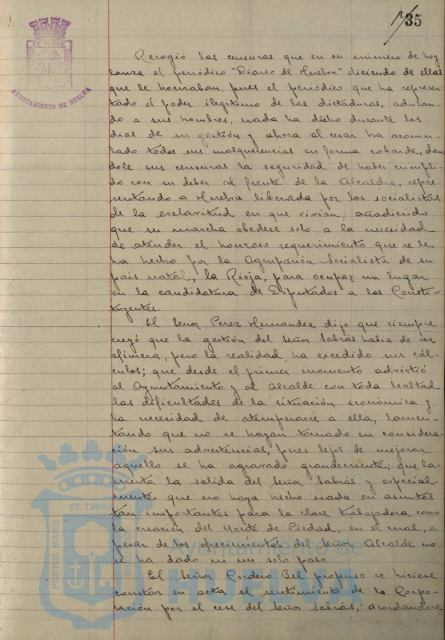 35
AYUNTAMIENTO DE HUELVA
Recogió las censuras que en su número de hoy
lanza el periódico "Diario de Huelva" diciendo de ellas
que le honraban, pues el periódico que ha represen
tado el poder ilegítimo de las dictaduras, aduman
do a sus hombres, nada ha dicho durante los
días de su gestión y ahora al cesar ha acumu
lado todas sus malquerencias en forma cobarde, dan
dole sus censuras la seguridad de haber cumpli
do con su deber al frente de la Alcaldía, repre
sentando a Huelva liberada por los socialistas
de la esclavitud en que vivían; añadiendo
que su marcha obedece solo a la necesidad
de atender el honroso requerimiento que se le
ha hecho por la Agrupación Socialista de su
país natal, la Rioja, para ocupar un lugar
en la candidatura de Diputados a las Consti-
tuyentes.
El Señor Perez Hernandez dijo que siempre
creyó que la gestión del Señor Sabrás había de ser
efímera, pero la realidad ha excedido sus cál
culos; que desde el primer momento advirtió
al Ayuntamiento y al Alcalde con toda lealtad
las dificultades de la situación económica y
la necesidad de atemperarse a ella, lamen
tando que no se hayan tomado en considera
ción sus advertencias, pues lejos de mejorar
aquello se ha agravado grandemente; que la
menta la salida del Señor Sabrás y especial
mente que no haya hecho nada en asuntos
tan importantes para la clase trabajadora como
la creación del Monte de Piedad, en el cual, a
pesar de los ofrecimientos del Señor Alcalde no
se ha dado ni un solo paso.
El Señor Cordero Bel propuso se hiciese
constar en acta el sentimiento de la Corpo
ración por el cese del Señor Sabrás; acordandose
Ayuntamiento de
HUELVA
PORTUS MARIS ET TERRAE